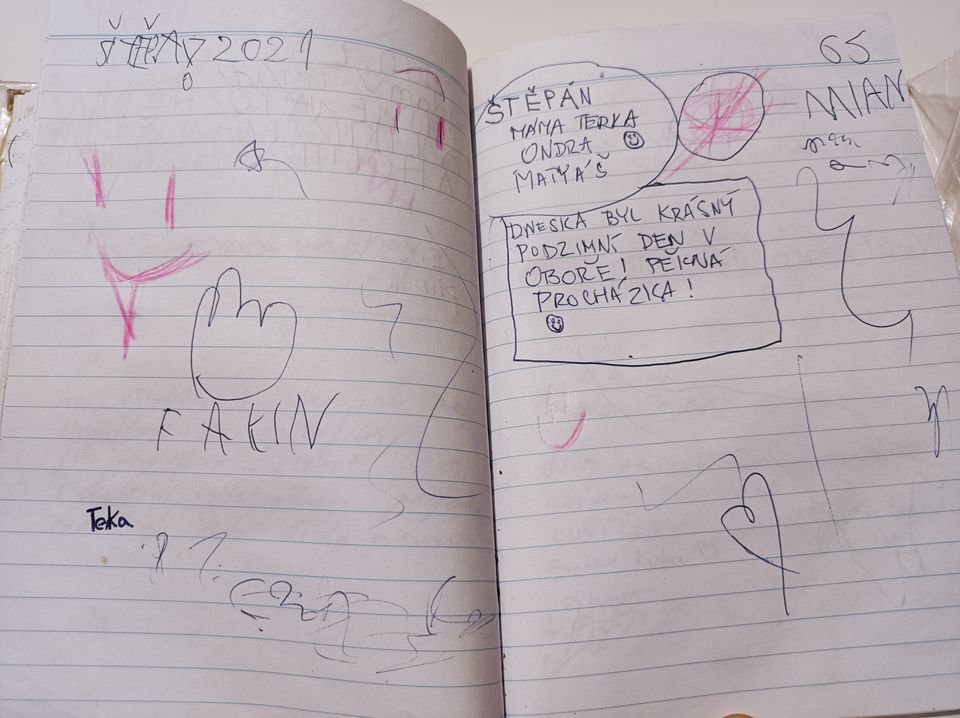 ŠTĚPÁN 2021
FAKIN
Teka
65
ŠTĚPÁN
MÁMA TERKA
ONDRA
MATYÁŠ
MIAN
DNESKA BYL KRÁSNÝ
PODZIMNÍ DEN V
OBOŘE! PĚKNÁ
PROCHÁZKA!